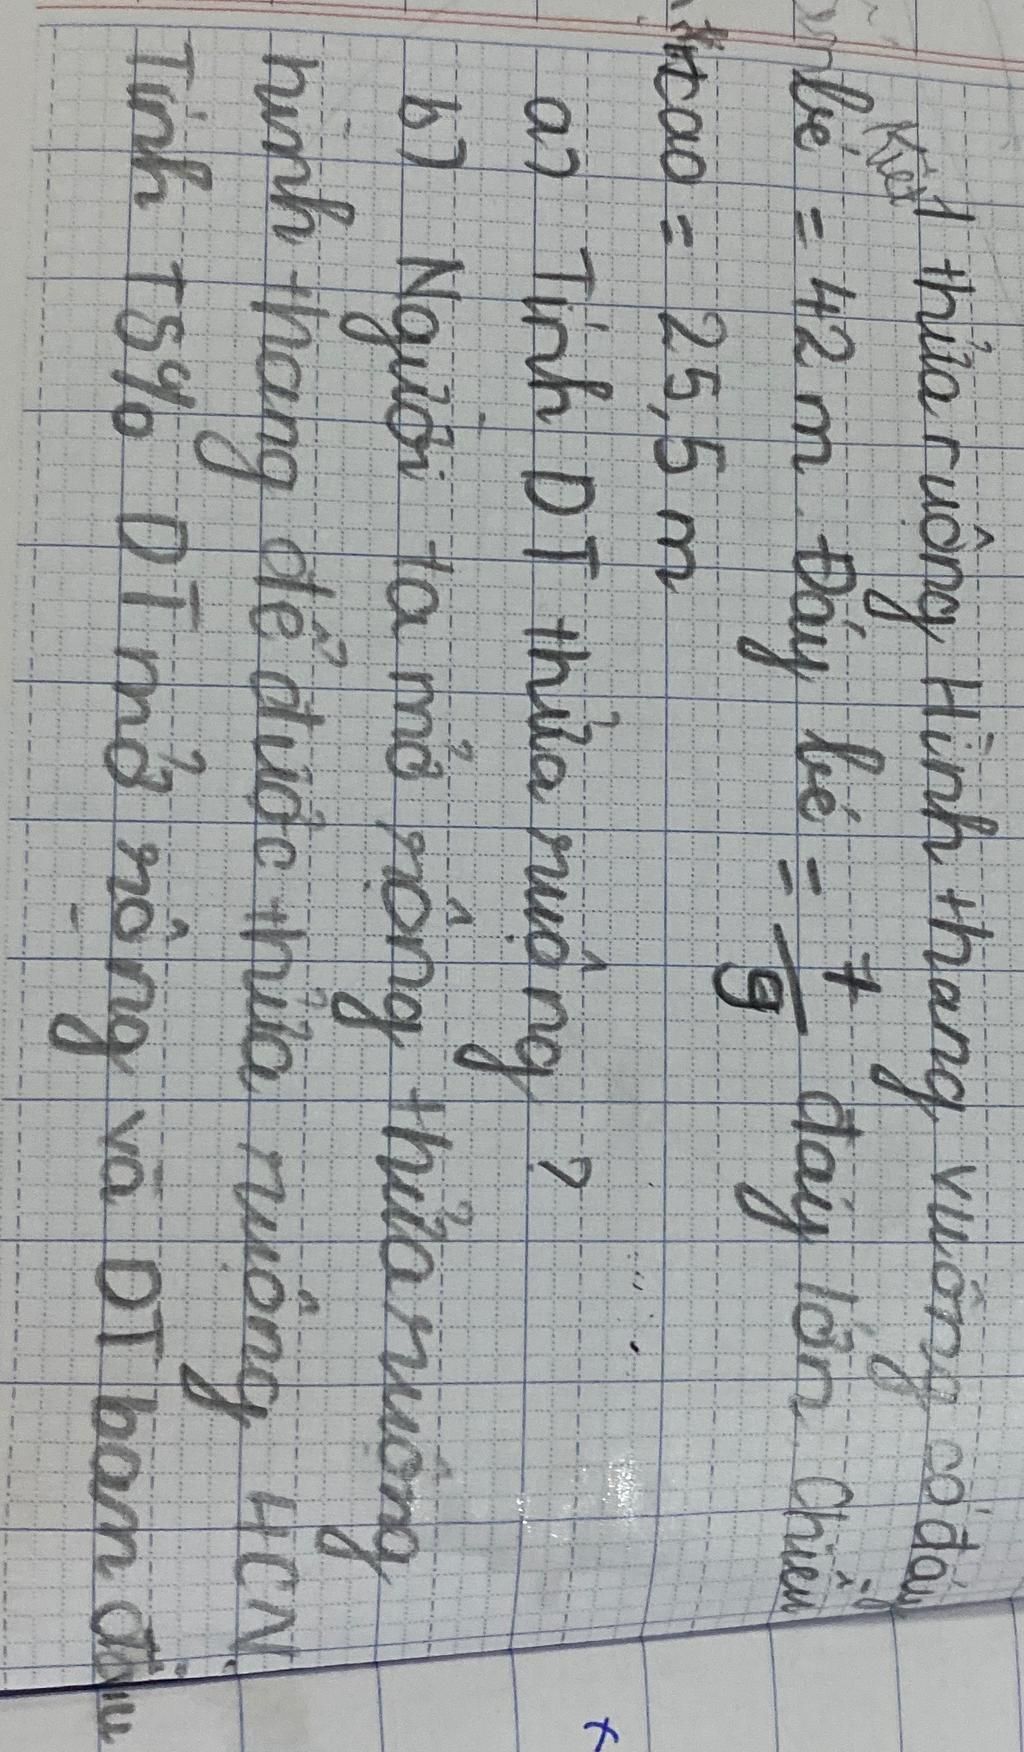 1 thửa ruộng Hình thang vuông có đáy
bé = 42 m. Đáy bé = 7/9 đáy lớn. Chiều
cao = 25,5 m
a) Tính DT thửa ruộng ?
b) Người ta mở rộng thửa ruộng
hình thang để được thửa ruộng HCN.
Tính T8% DT mở rộng và DT ban đầu
x